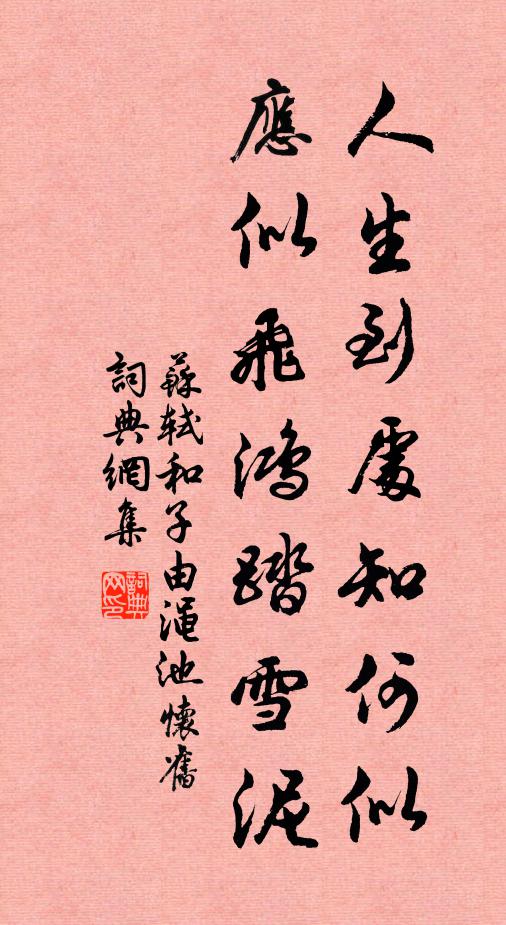 人生到處知何似
應似飛鴻踏雪泥
蘇軾和子由澠池懷舊
詞典網集
詞典网印